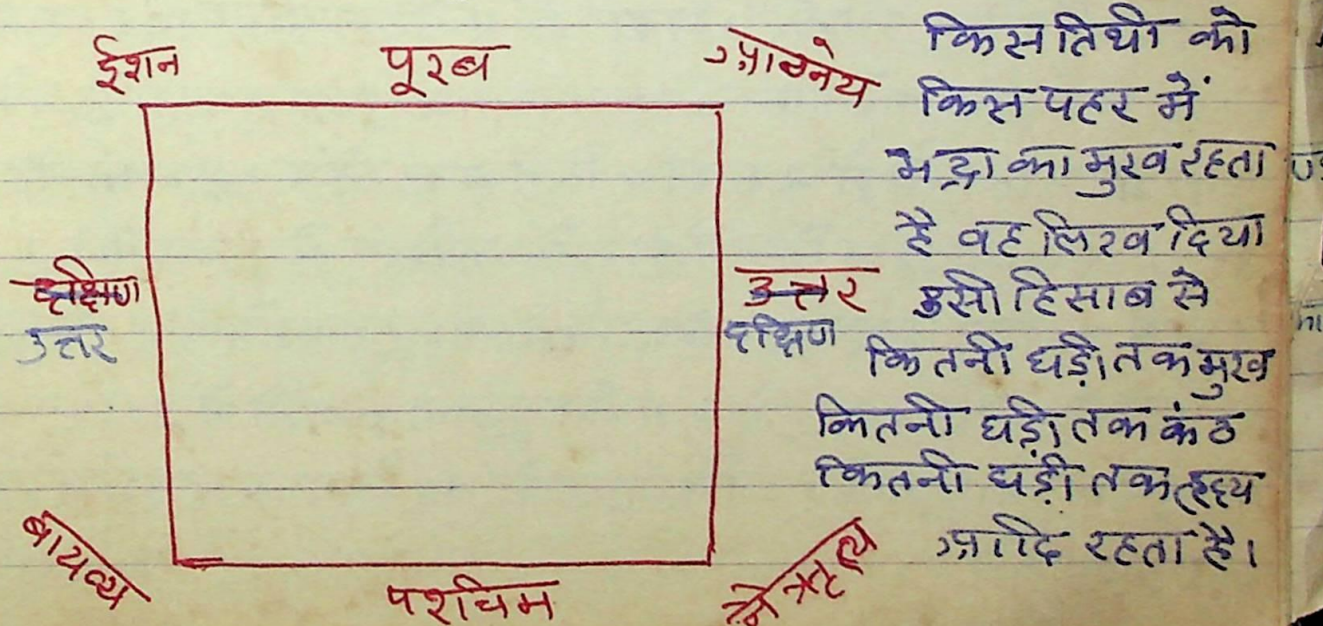 ईशान पूरब आग्नेय
दक्षिण उत्तर
उत्तर दक्षिण
बायव्य पश्चिम
किस तिथी को
किस पहर में
भद्रा का मुख रहता
है वह लिख दिया
उसी हिसाब से
कितनी घड़ी तक मुख
कितनी घड़ी तक कंठ
कितनी घड़ी तक हृदय
आदि रहता है।